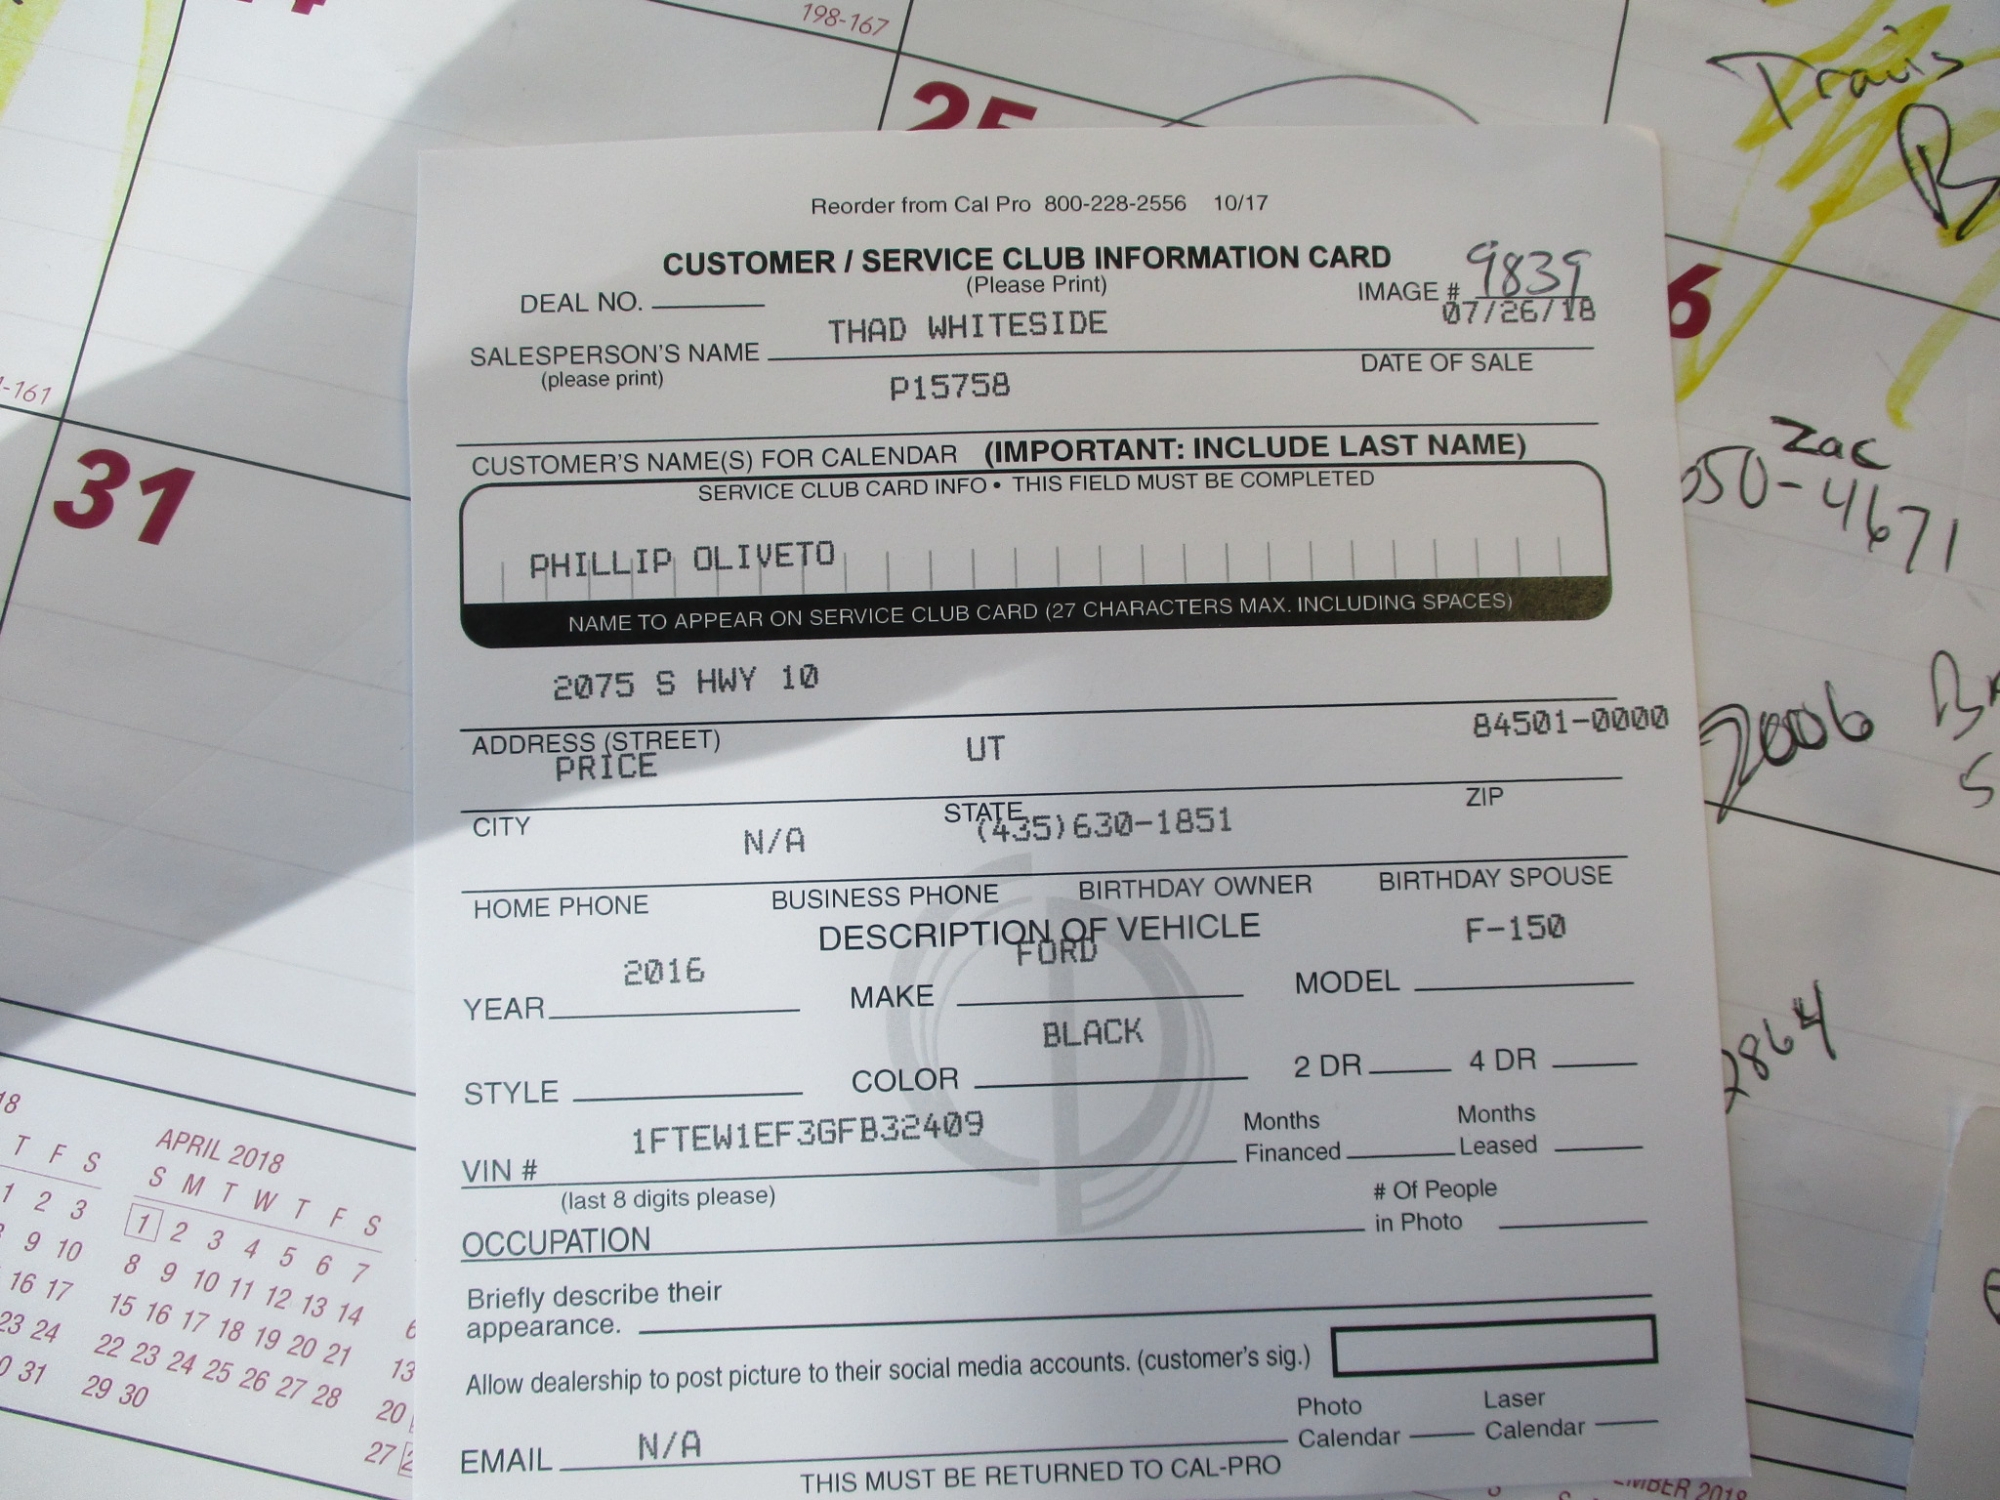 198-167
25
Travis
B
Reorder from Cal Pro 800-228-2556 10/17
CUSTOMER / SERVICE CLUB INFORMATION CARD
(Please Print)
DEAL NO.
IMAGE # 9839
THAD WHITESIDE
07/26/18
SALESPERSON'S NAME
(please print)
DATE OF SALE
P15758
CUSTOMER'S NAME(S) FOR CALENDAR (IMPORTANT: INCLUDE LAST NAME)
SERVICE CLUB CARD INFO • THIS FIELD MUST BE COMPLETED
PHILLIP OLIVETO
NAME TO APPEAR ON SERVICE CLUB CARD (27 CHARACTERS MAX. INCLUDING SPACES)
2075 S HWY 10
ADDRESS (STREET)
PRICE
UT
84501-0000
CITY
STATE
ZIP
N/A
(435)630-1851
HOME PHONE
BUSINESS PHONE
BIRTHDAY OWNER
BIRTHDAY SPOUSE
DESCRIPTION OF VEHICLE
2016
FORD
F-150
YEAR
MAKE
MODEL
BLACK
STYLE
COLOR
2 DR
4 DR
1FTEW1EF3GFB32409
VIN #
(last 8 digits please)
Months
Financed
Months
Leased
OCCUPATION
# Of People
in Photo
Briefly describe their
appearance.
Allow dealership to post picture to their social media accounts. (customer's sig.)
Photo
Calendar
Laser
Calendar
EMAIL N/A
THIS MUST BE RETURNED TO CAL-PRO
-161
31
6
Zac
050-4671
2006
2864
T F S
1 2 3
9 10
16 17
23 24
31
APRIL 2018
S M T W T F S
1 2 3 4 5 6 7
8 9 10 11 12 13 14
15 16 17 18 19 20 21
22 23 24 25 26 27 28
29 30
6
13
20
27
2018